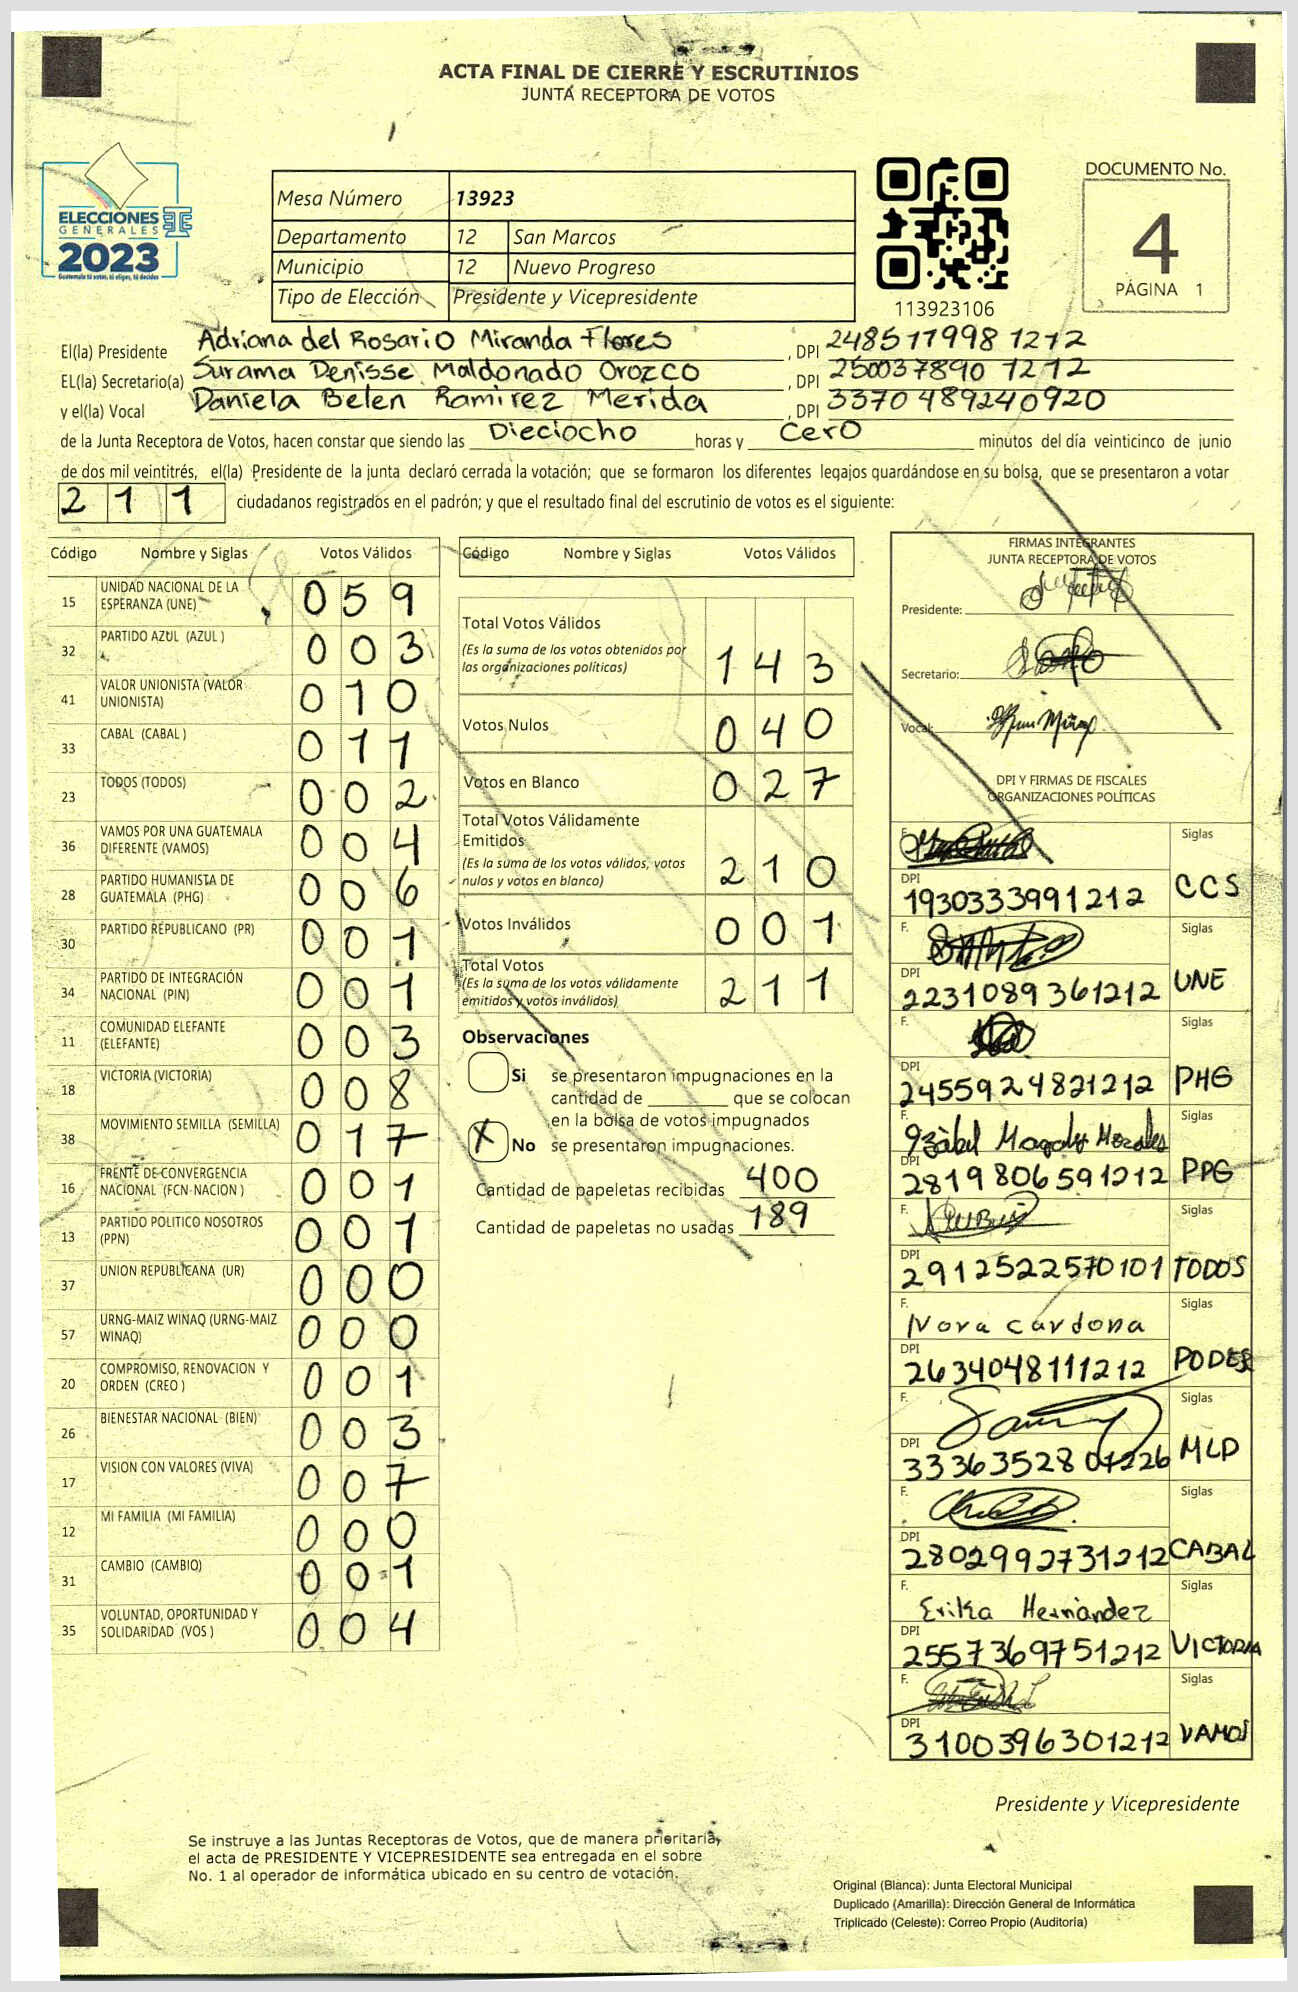 ACTA FINAL DE CIERRE Y ESCRUTINIOS
JUNTA RECEPTORA DE VOTOS
ELECCIONES
GENERALES
2023
Guatemala tú votas, tú eliges, tú decides
Mesa Número 13923
Departamento 12 San Marcos
Municipio 12 Nuevo Progreso
Tipo de Elección Presidente y Vicepresidente
113923106
DOCUMENTO No.
4
PÁGINA 1
El(la) Presidente Adriana del Rosario Miranda Flores, DPI 248517998 1212
EL(la) Secretario(a) Surama Denisse Maldonado Orozco, DPI 250037890 1212
y el(la) Vocal Daniela Belen Ramirez Merida, DPI 3370489240920
de la Junta Receptora de Votos, hacen constar que siendo las Dieciocho horas y Cero minutos del día veinticinco de junio
de dos mil veintitrés, el(la) Presidente de la junta declaró cerrada la votación; que se formaron los diferentes legajos quardándose en su bolsa, que se presentaron a votar
211 ciudadanos registrados en el padrón; y que el resultado final del escrutinio de votos es el siguiente:
Código Nombre y Siglas Votos Válidos
15 UNIDAD NACIONAL DE LA ESPERANZA (UNE) 059
32 PARTIDO AZUL (AZUL ) 003
41 VALOR UNIONISTA (VALOR UNIONISTA) 010
33 CABAL (CABAL ) 011
23 TODOS (TODOS) 002
36 VAMOS POR UNA GUATEMALA DIFERENTE (VAMOS) 004
28 PARTIDO HUMANISTA DE GUATEMALA (PHG) 006
30 PARTIDO REPUBLICANO (PR) 001
34 PARTIDO DE INTEGRACIÓN NACIONAL (PIN) 001
11 COMUNIDAD ELEFANTE (ELEFANTE) 003
18 VICTORIA (VICTORIA) 008
38 MOVIMIENTO SEMILLA (SEMILLA) 017
16 FRENTE DE CONVERGENCIA NACIONAL (FCN-NACION ) 001
13 PARTIDO POLITICO NOSOTROS (PPN) 001
37 UNION REPUBLICANA (UR) 000
57 URNG-MAIZ WINAQ (URNG-MAIZ WINAQ) 000
20 COMPROMISO, RENOVACION Y ORDEN (CREO ) 001
26 BIENESTAR NACIONAL (BIEN) 003
17 VISION CON VALORES (VIVA) 007
12 MI FAMILIA (MI FAMILIA) 000
31 CAMBIO (CAMBIO) 001
35 VOLUNTAD, OPORTUNIDAD Y SOLIDARIDAD (VOS ) 004
Código Nombre y Siglas Votos Válidos
Total Votos Válidos
(Es la suma de los votos obtenidos por
las organizaciones políticas) 143
Votos Nulos 040
Votos en Blanco 027
Total Votos Válidamente
Emitidos
(Es la suma de los votos válidos, votos
nulos y votos en blanco) 210
Votos Inválidos 001
Total Votos
(Es la suma de los votos válidamente
emitidos y votos inválidos) 211
Observaciones
Si se presentaron impugnaciones en la
cantidad de ________ que se colocan
en la bolsa de votos impugnados
X No se presentaron impugnaciones.
Cantidad de papeletas recibidas 400
Cantidad de papeletas no usadas 189
FIRMAS INTEGRANTES
JUNTA RECEPTORA DE VOTOS
Presidente:
Secretario:
Vocal:
DPI Y FIRMAS DE FISCALES
ORGANIZACIONES POLÍTICAS
F. Siglas
DPI 1930333991212 CCS
F. Siglas
DPI 2231089361212 UNE
F. Siglas
DPI 2455924821212 PHG
F. Izabel Magaly Morales Siglas
DPI 2819806591212 PPG
F. Siglas
DPI 2912522570101 TODOS
F. Nora Cardona Siglas
DPI 2634048111212 PODER
F. Siglas
DPI MLP
F. Siglas
DPI 2802992731212 CABAL
F. Erika Hernandez Siglas
DPI 2557369751212 VICTORIA
F. Siglas
DPI 3100396301212 VAMOS
Presidente y Vicepresidente
Se instruye a las Juntas Receptoras de Votos, que de manera prioritaria,
el acta de PRESIDENTE Y VICEPRESIDENTE sea entregada en el sobre
No. 1 al operador de informática ubicado en su centro de votación.
Original (Blanca): Junta Electoral Municipal
Duplicado (Amarilla): Dirección General de Informática
Triplicado (Celeste): Correo Propio (Auditoría)